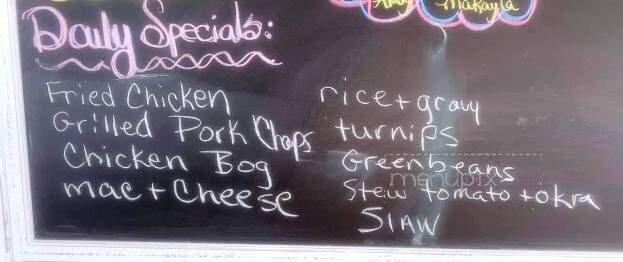 Makayla
Daily Specials:
Fried Chicken
Grilled Pork Chops
Chicken Bog
mac + Cheese
rice + gravy
turnips
Greenbeans
Stew tomato + okra
Slaw
menupix